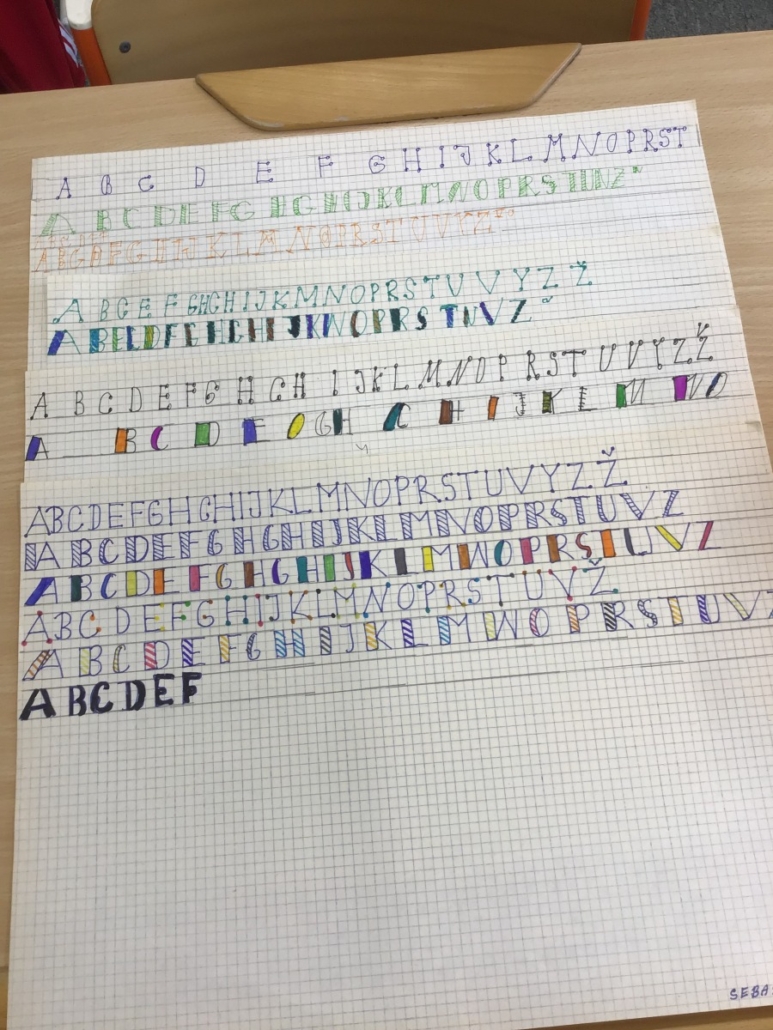 A B C D E F G H I J K L M N O P R S T
A B C D E F G H CH I J K L M N O P R S T U V Z
A B C D F G H I J K L M N O P R S T U V Y Z
A B C E F G H CH I J K M N O P R S T U V Y Z Ž
A B E C D F G H CH I J K N O P R S T U V Z
A B C D E F G H CH I J K L M N O P R S T U V Y Z Ž
A B C D E O G H C H I J K L M N O
A B C D E F G H CH I J K L M N O P R S T U V Y Z Ž
A B C D E F G H CH I J K L M N O P R S T U V Z
A B C D E F G H CH I J K L M N O P R S T U V Z
A B C D E F G H I J K L M N O P R S T U V Ž
A B C D E F G H I J K L M N O P R S T U V Z
A B C D E F
SEBA